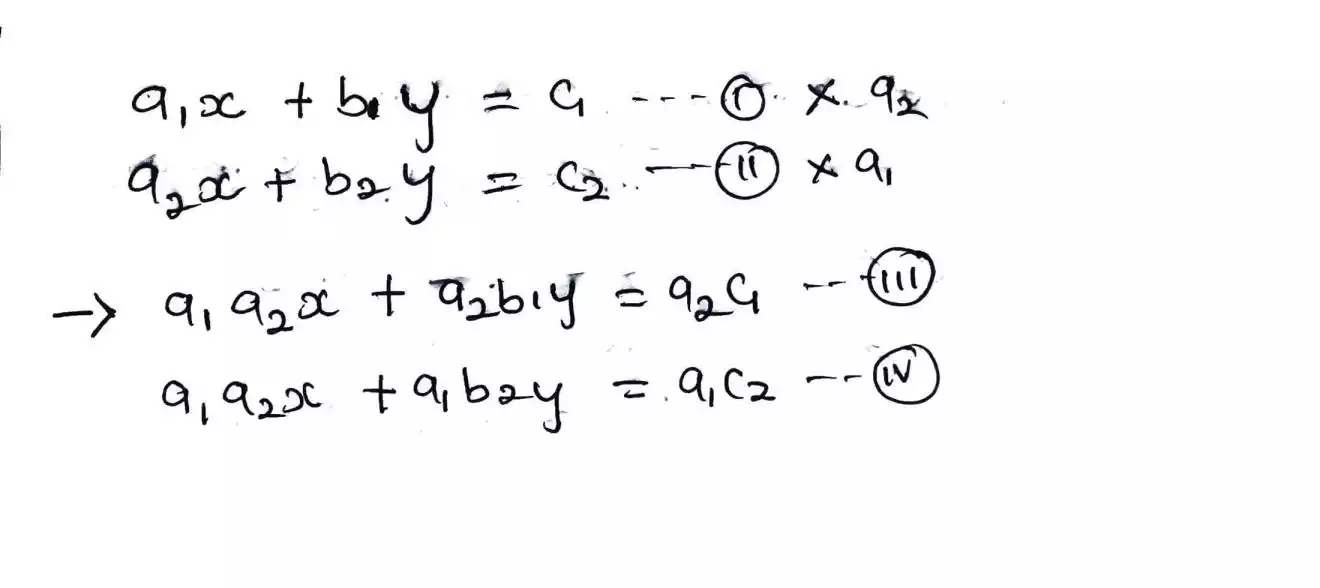 a₁x + b₁y = c₁ ---- (I) × a₂
a₂x + b₂y = c₂ -- (II) × a₁
→ a₁a₂x + a₂b₁y = a₂c₁ --- (III)
a₁a₂x + a₁b₂y = a₁c₂ --- (IV)